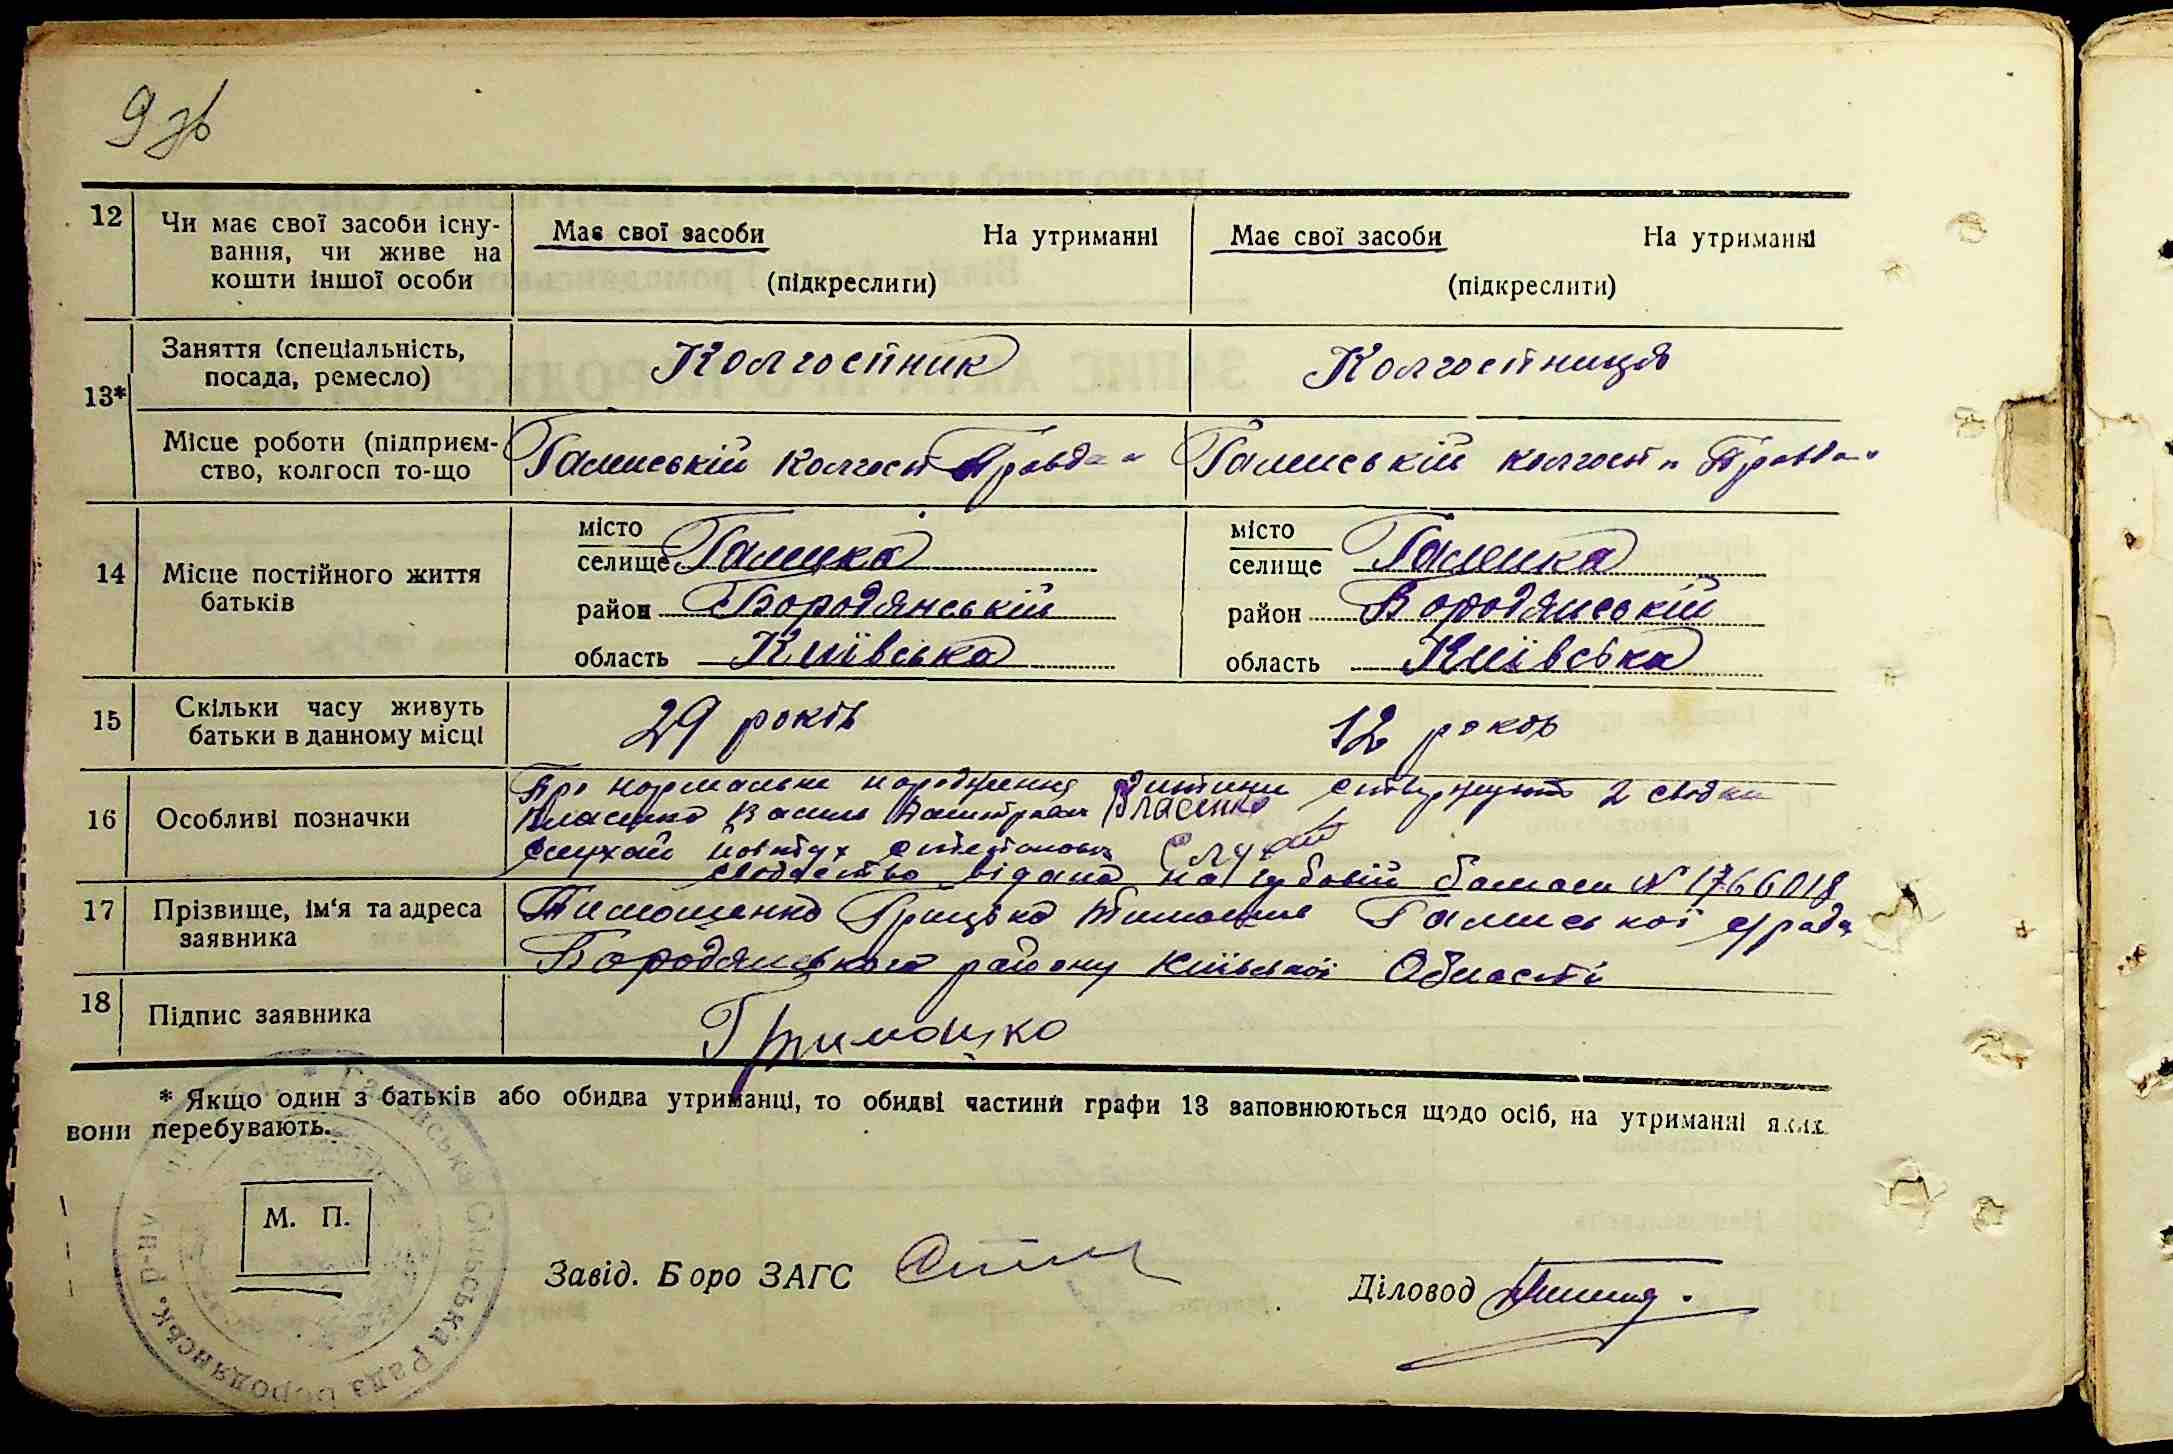 9 зв
12 Чи має свої засоби існу-
вання, чи живе на
кошти іншої особи
Має свої засоби На утриманні
(підкреслити)
Має свої засоби На утриманні
(підкреслити)
13*
Заняття (спеціальність,
посада, ремесло)
Колгоспник
Колгоспниця
Місце роботи (підприєм-
ство, колгосп то-що
Галиський колгосп "Правда"
Галиський колгосп "Правда"
14 Місце постійного життя
батьків
місто
селище Галинка
район Бородянський
область Київська
місто
селище Галинка
район Бородянський
область Київська
15 Скільки часу живуть
батьки в данному місці
29 років
12 років
16 Особливі позначки
Про нормальне народження дитини стверджують 2 свідки
Власенко Василь Власенко
Слухай
свідоцтво відано на гербовій бомазі № 1766018
17 Прізвище, ім'я та адреса
заявника
Тимошенко Грицько с/рада
Бородянського району Київської Області
18 Підпис заявника
* Якщо один з батьків або обидва утриманці, то обидві частини графи 13 заповнюються щодо осіб, на утриманні яких
вони перебувають.
М. П.
Сільська Рада Бородянськ. р-ну
Завід. Бюро ЗАГС
Діловод